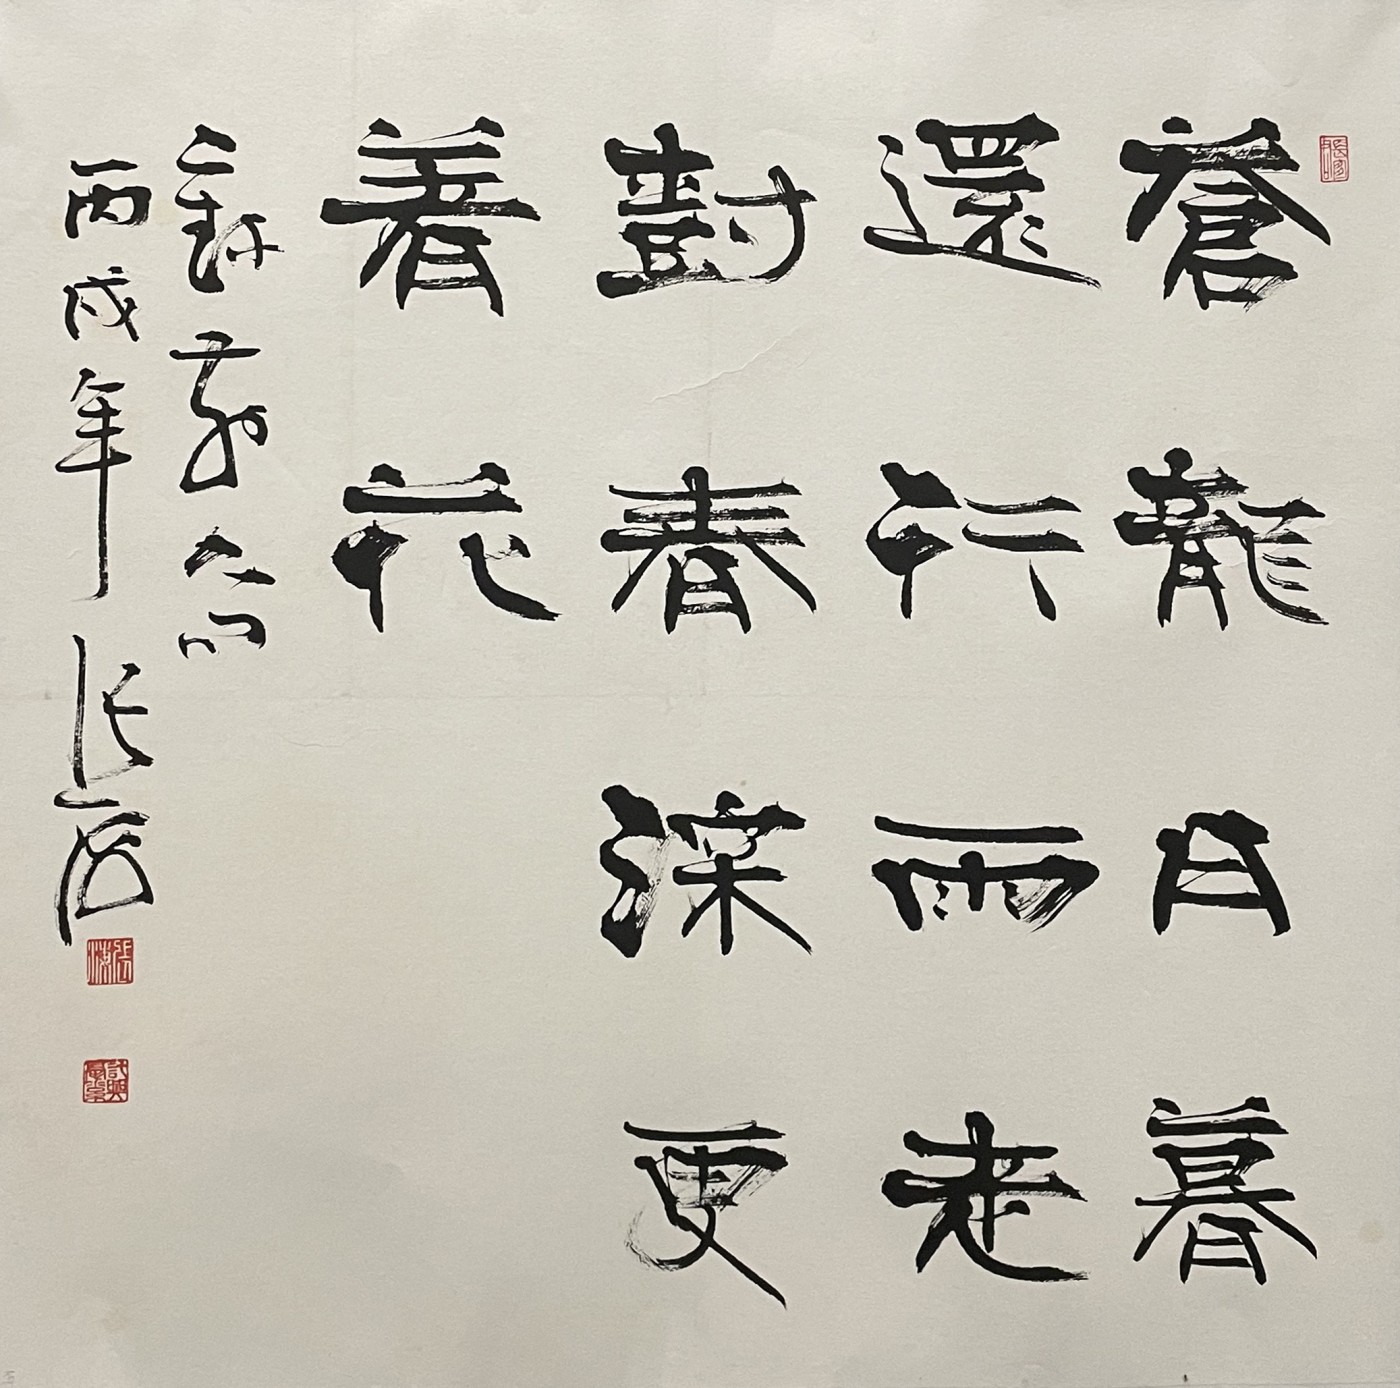 蒼龍日暮
還行雨老
樹春深更
著花
錄前人句
丙戌年 張海
張海